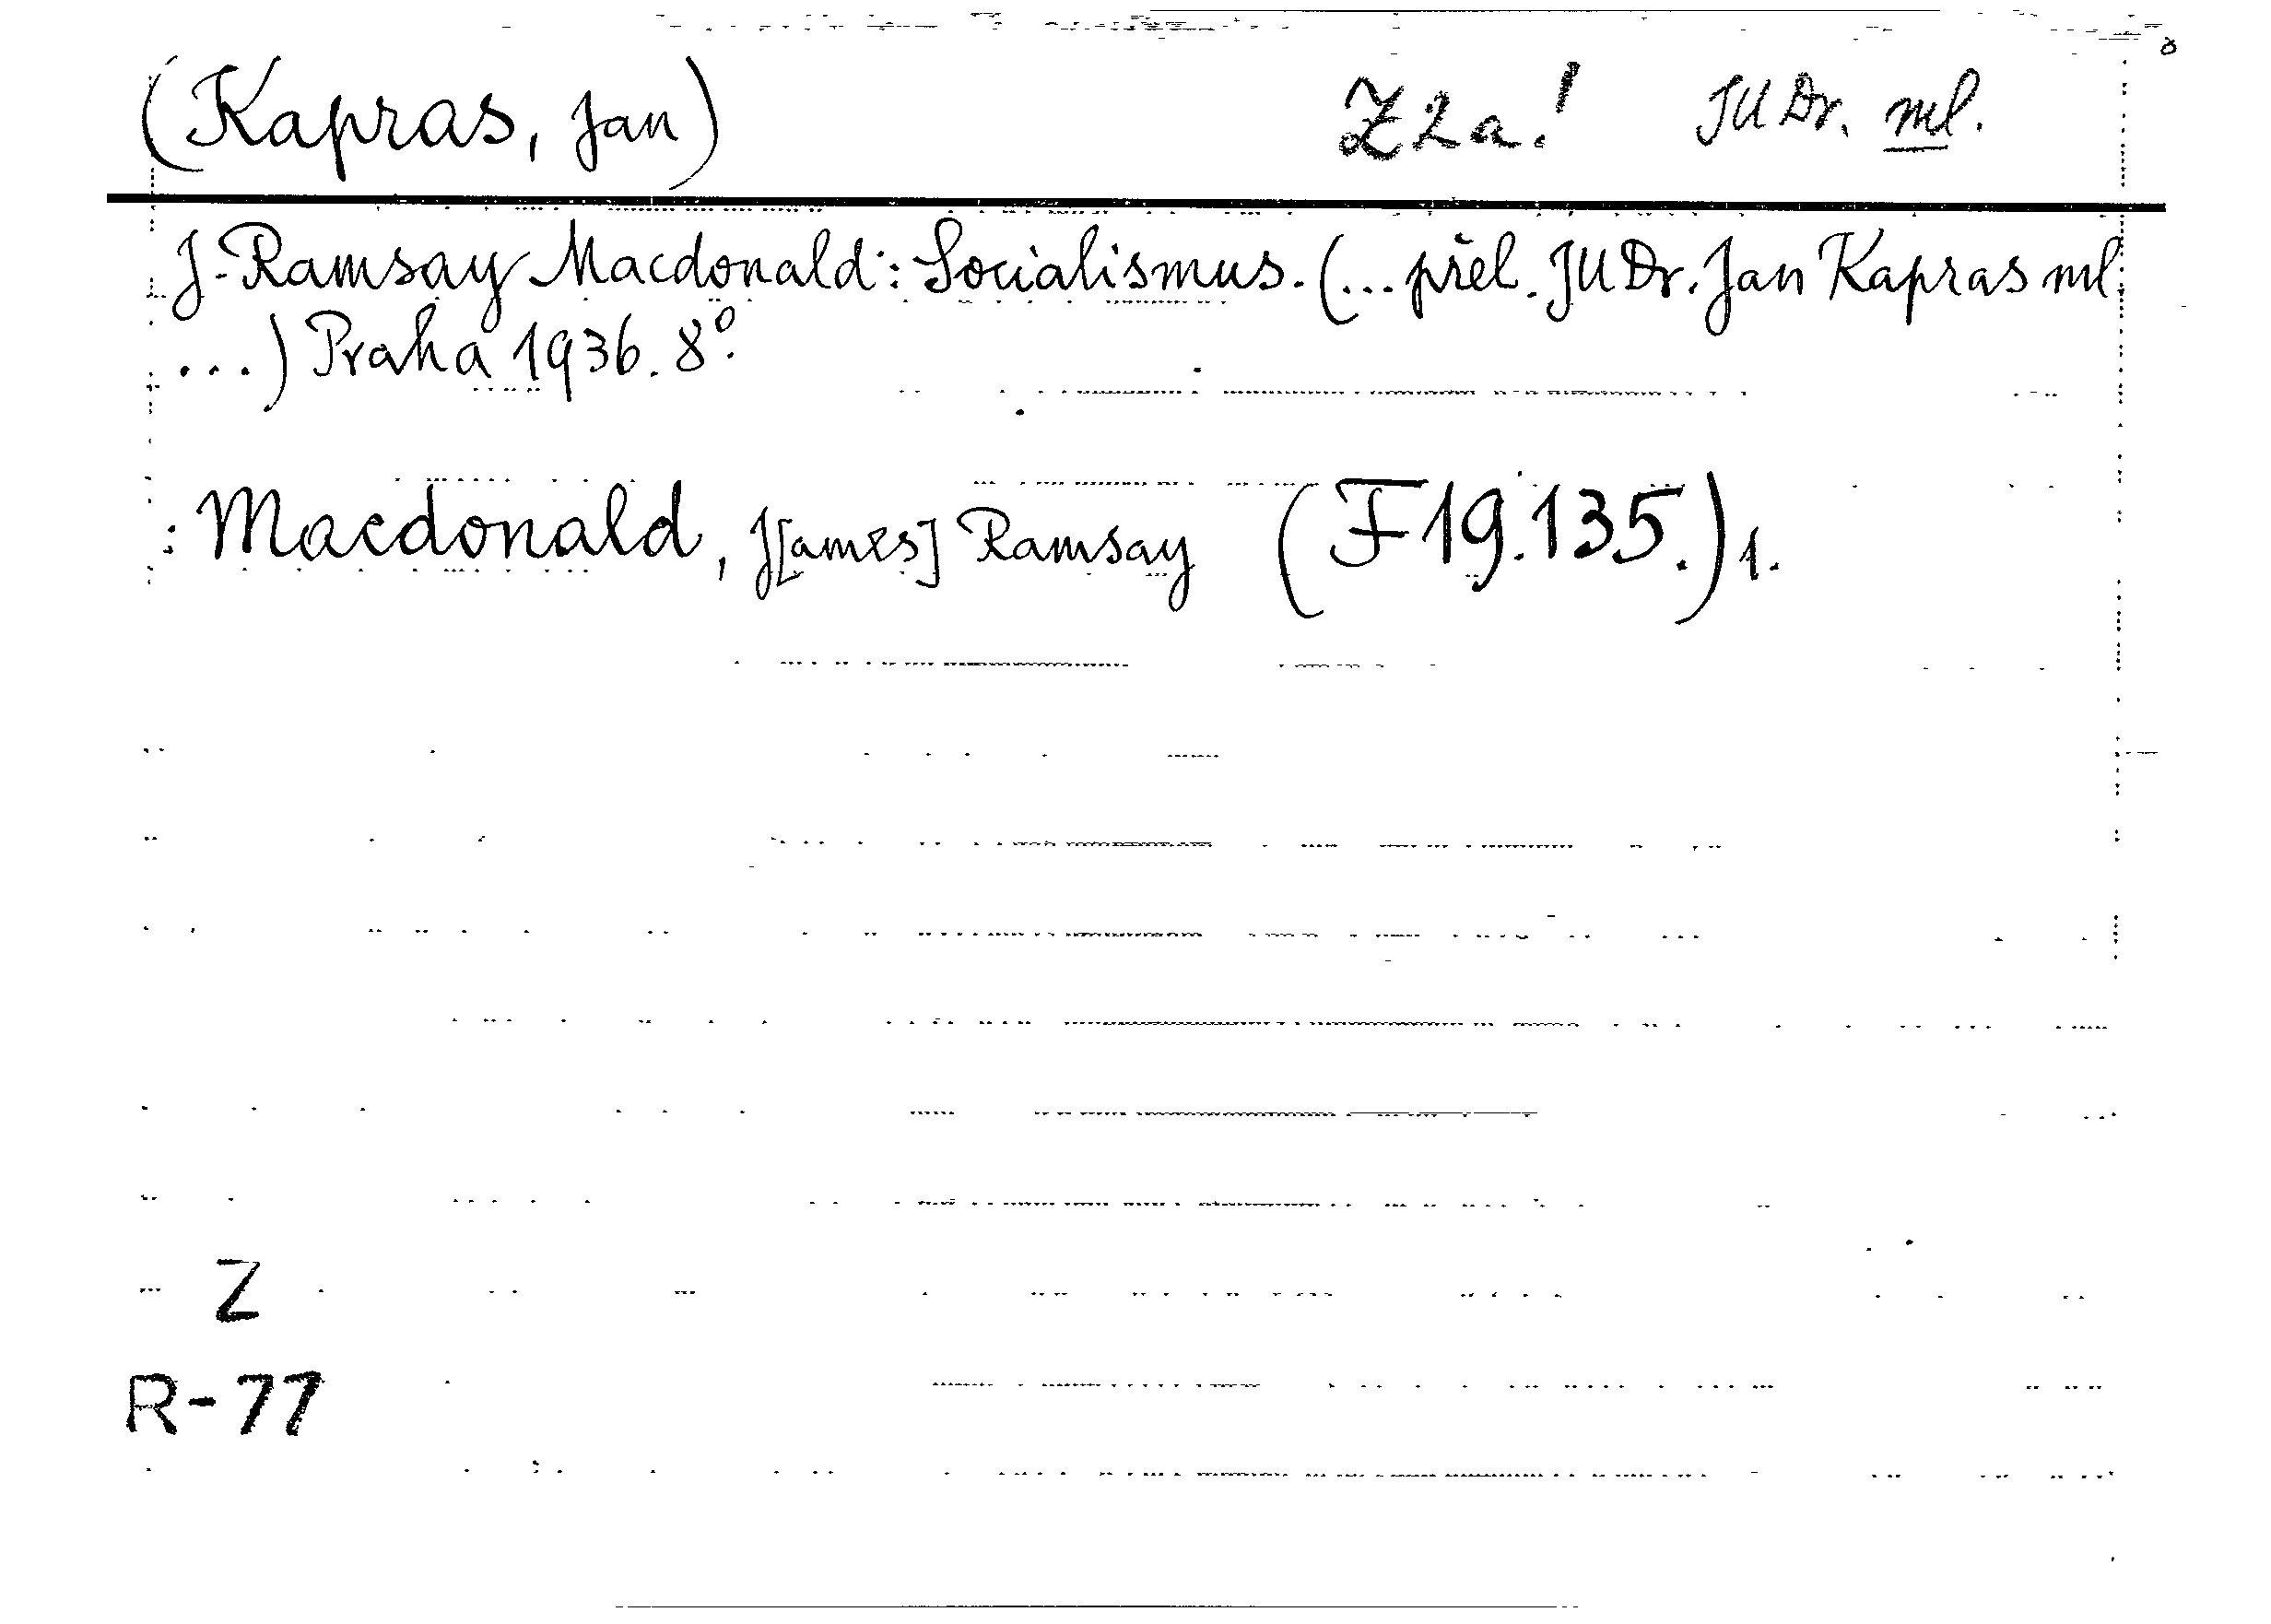 (Kapras, Jan) Z2a! JUDr. ml.
J. Ramsay Macdonald: Socialismus. (... přel. JUDr. Jan Kapras ml.
...) Praha 1936. 8°.
: Macdonald, J[ames] Ramsay (F19.135.) 1.
Z
R-77